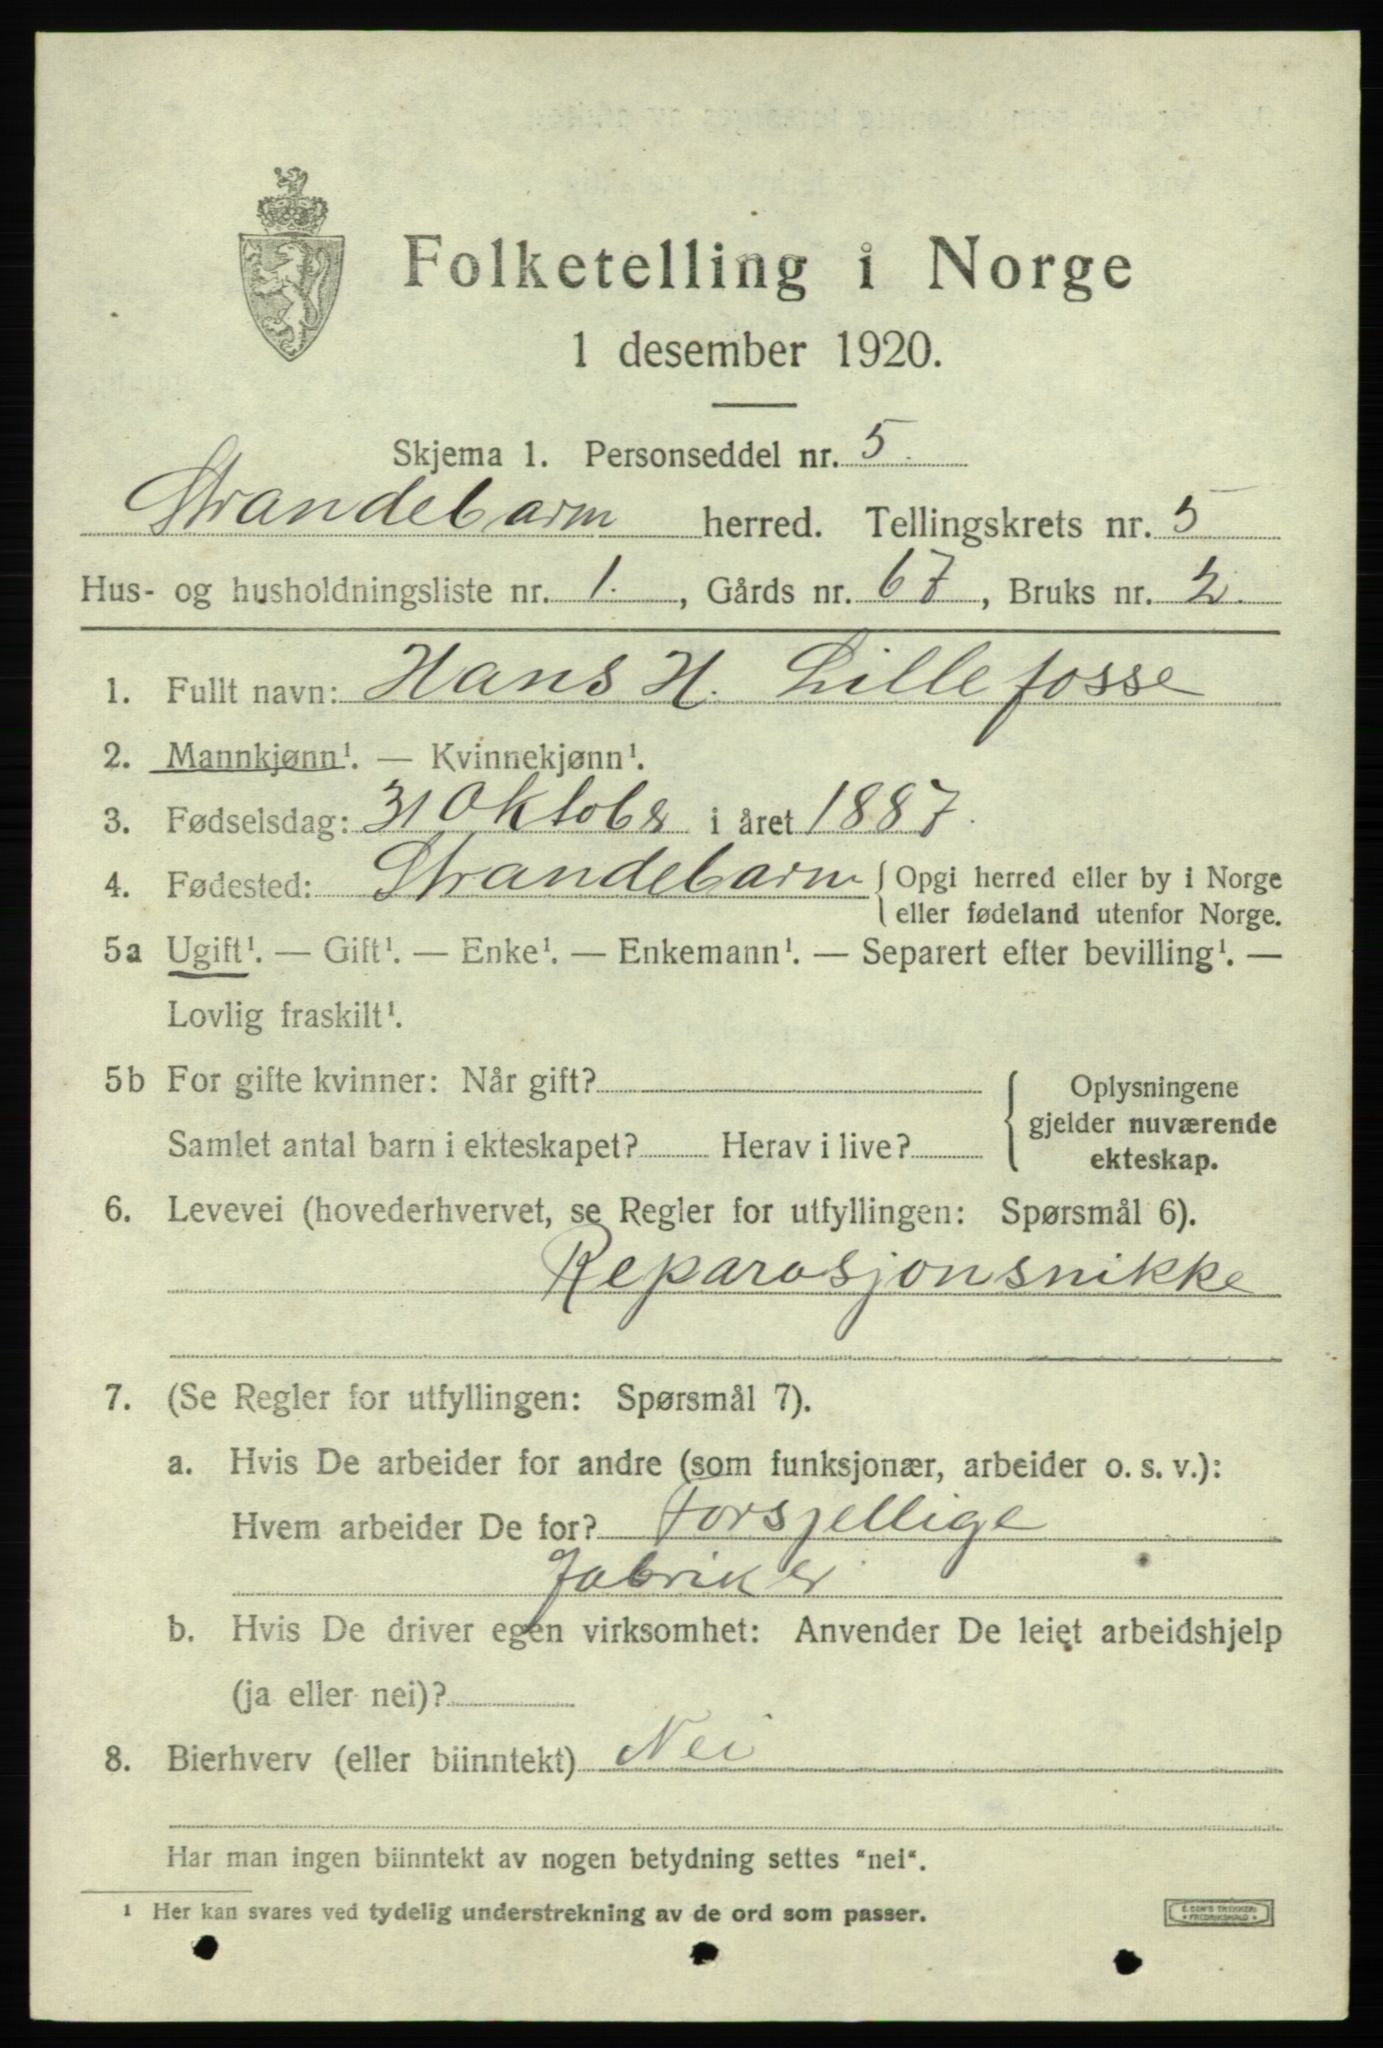 Folketelling i Norge
1 desember 1920.
Skjema 1. Personseddel nr. 5.
Strandebarm herred. Tellingskrets nr. 5
Hus- og husholdningsliste nr. 1., Gårds nr. 67, Bruks nr. 2.
1. Fullt navn: Hans H. Lillefosse
2. Mannkjønn¹. — Kvinnekjønn¹.
3. Fødselsdag: 31 Oktober i året 1887.
4. Fødested: Strandebarm { Opgi herred eller by i Norge
eller fødeland utenfor Norge.
5a Ugift¹. — Gift¹. — Enke¹. — Enkemann¹. — Separert efter bevilling¹. —
Lovlig fraskilt¹.
5b For gifte kvinner: Når gift? { Oplysningene
gjelder nuværende
Samlet antal barn i ekteskapet? Herav i live? ekteskap.
6. Levevei (hovederhvervet, se Regler for utfyllingen: Spørsmål 6).
Reparasjonsnikke
7. (Se Regler for utfyllingen: Spørsmål 7).
a. Hvis De arbeider for andre (som funksjonær, arbeider o. s. v.):
Hvem arbeider De for? Forsjellige
Fabriker
b. Hvis De driver egen virksomhet: Anvender De leiet arbeidshjelp
(ja eller nei)?
8. Bierhverv (eller biinntekt) Nei
Har man ingen biinntekt av nogen betydning settes "nei".
¹ Her kan svares ved tydelig understrekning av de ord som passer.